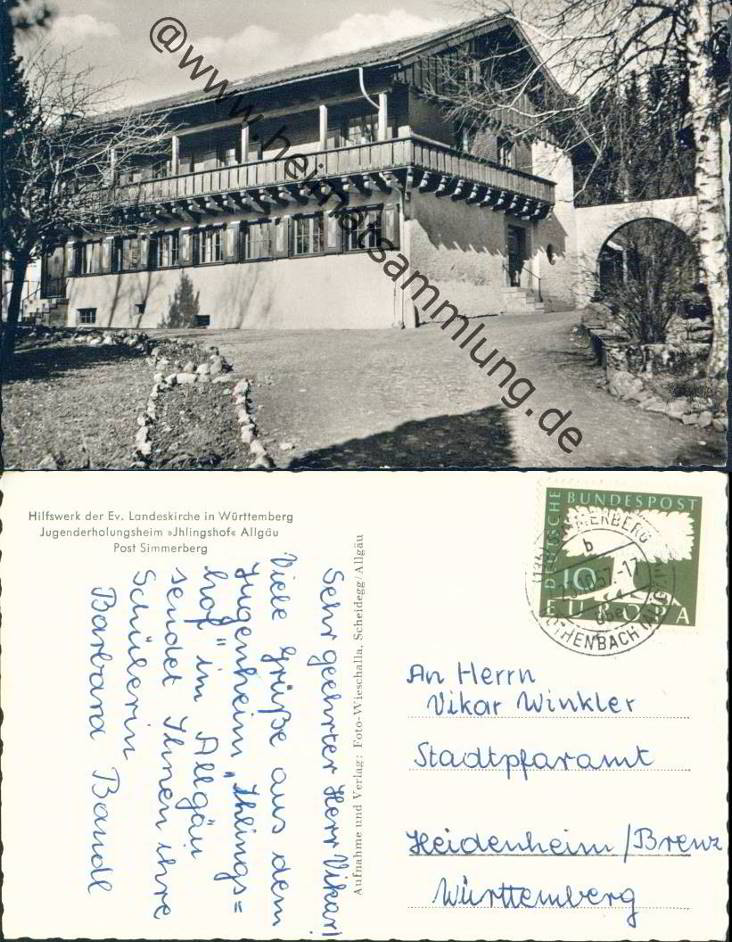 @www.heimatsammlung.de
Hilfswerk der Ev. Landeskirche in Württemberg
Jugenderholungsheim »Jhlingshof« Allgäu
Post Simmerberg
Sehr geehrter Herr Vikar!
Viele Grüße aus dem
Jugenheim „Ihlings=
hof" im Allgäu
sendet Ihnen ihre
Schülerin
Barbara Bandl
Aufnahme und Verlag: Foto-Wieschalla, Scheidegg/Allgäu
DEUTSCHE BUNDESPOST
10
EUROPA
SIMMERBERG
b
57.-17
über
RÖTHENBACH (ALLGÄU)
An Herrn
Vikar Winkler
Stadtpfaramt
Heidenheim/Brenz
Württemberg